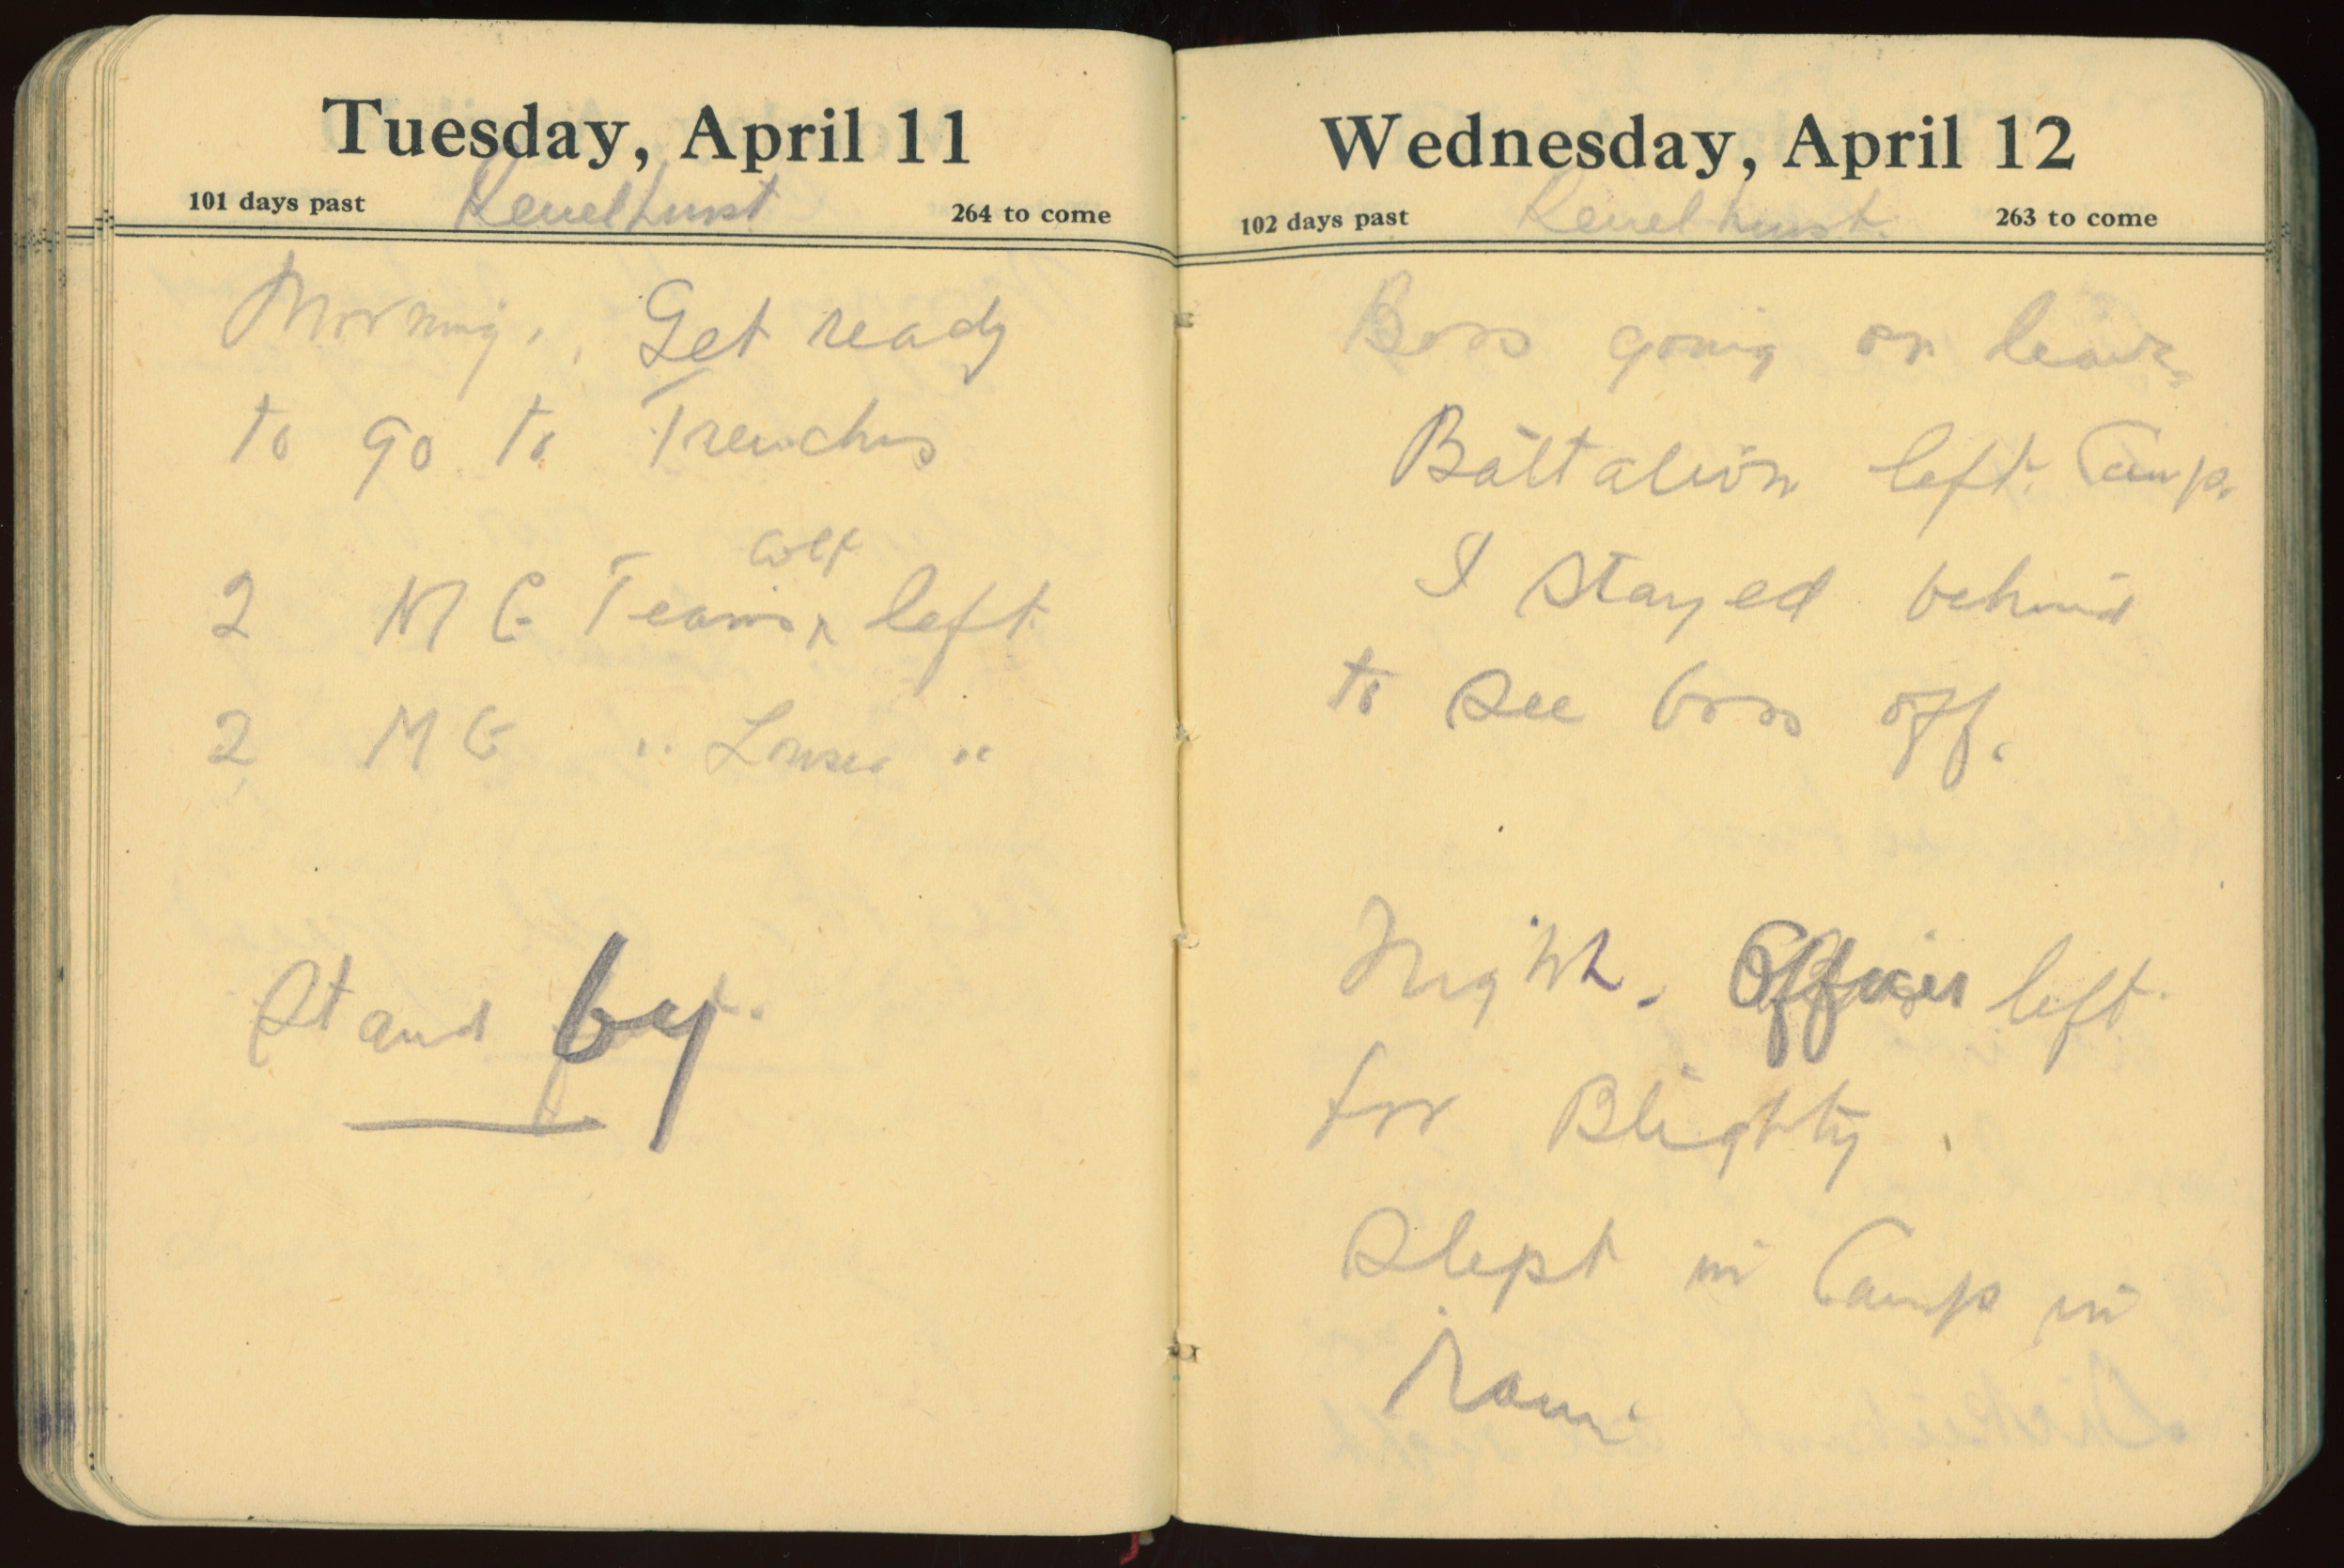 Tuesday, April 11
101 days past Kenelhurst 264 to come
Morning. Get ready
to go to Trenches
Colt
2 MG Teams ^ left
2 MG " Lewis "
Stand by.
Wednesday, April 12
102 days past Kenelhurst. 263 to come
Boss going on leave.
Battalion left Camp.
I stayed behind
to see boss off.
Night. Officer left
for Blighty.
Slept in Camp in